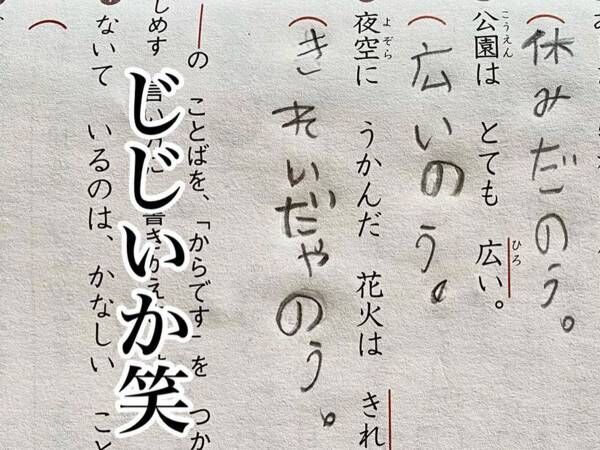 休みだのう。
公園は とても 広い。
こうえん
ひろ
広いのう。
夜空に うかんだ 花火は きれ
よぞら
きれいだゃのう。
の ことばを、「からです」を つか
じじいか笑
ないて いるのは、かなしい こと